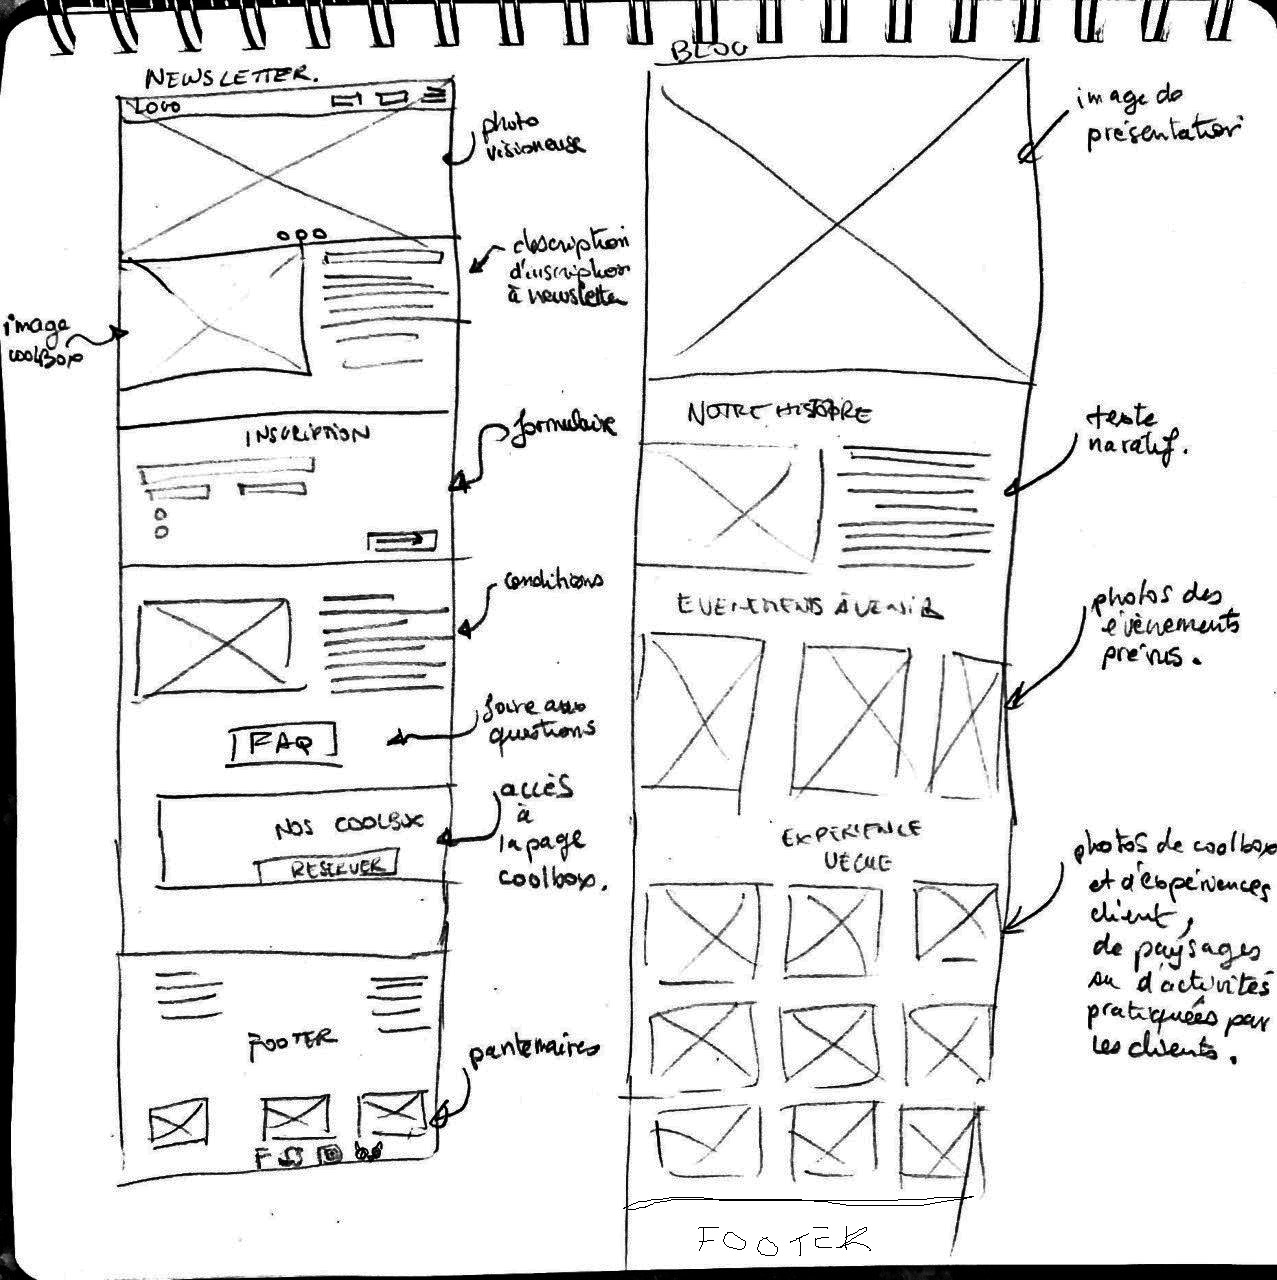 NEWSLETTER.
LOGO
photo
visioneuse
description
d'inscription
à newsletter
image
coolBox
INSCRIPTION
formulaire
conditions
FAQ
foire aux
questions
NOS COOLBOX
RESERVER
accès
à
la page
coolbox.
FOOTER
partenaires
F
BLOG
image de
présentation
NOTRE HISTOIRE
texte
naratif.
EVENEMENTS À VENIR
photos des
évènements
prévus.
EXPERIENCE
VECUE
photos de coolbox
et d'expériences
client,
de paysages
ou d'activités
pratiquées par
les clients.
FOOTER